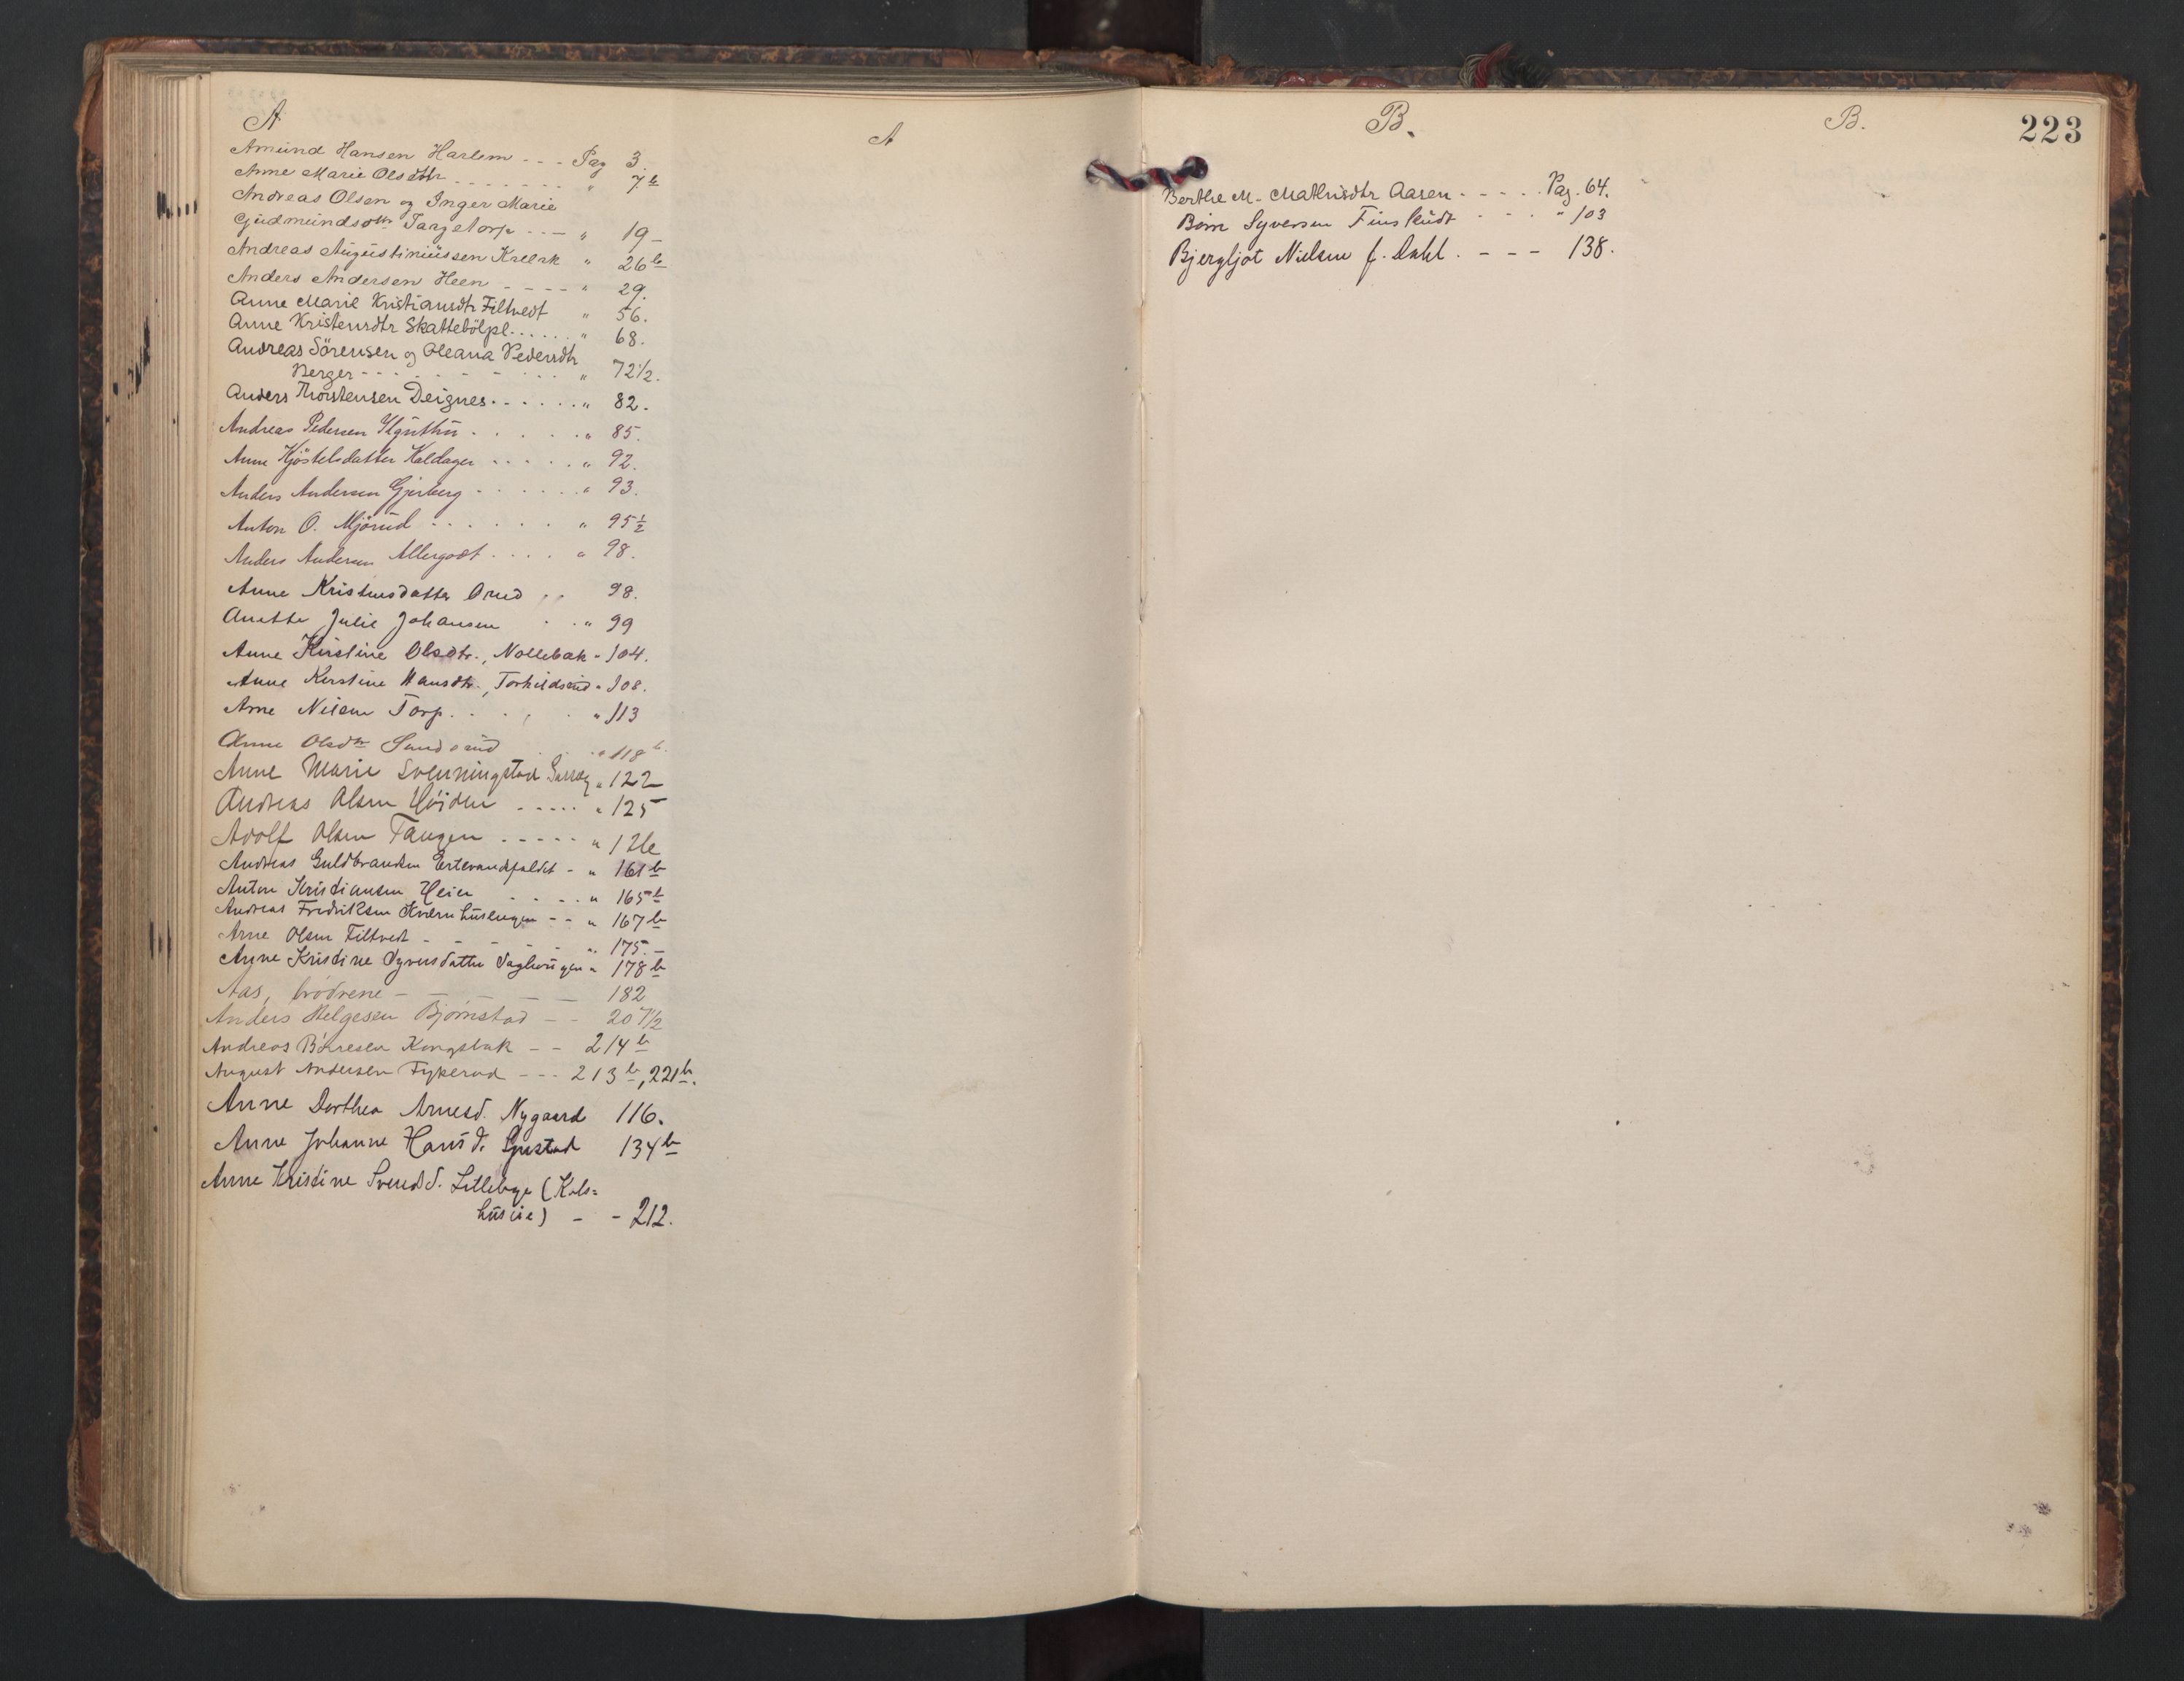 A
A
Amund Hansen Harlem - - - Pag 3.
Anne Marie Olsdttr - - - - - - - " 7 b
Andreas Olsen og Inger Marie
Gudmundsdttr Taagetorp - - - " 19 -
Andreas Augustiniussen " 26 b
Anders Andersen Heen - - - - " 29.
Anne Marie Kristiansdtr Filtvedt " 56.
Anne Kristensdtr Skattebölpl. . . . . " 68.
Andreas Sörensen og Oleana Pedersdtr
Berger - - - - - - - . . . " 72 1/2.
Anders Thorstensen Deignes. . . . . . " 82.
Andreas Pedersen . . . . . " 85.
Anne Kjöstelsdatter Haldager . . . . . " 92.
Anders Andersen Gjerberg . . . . . . " 93.
Anton O. Mjörud . . . . . . " 95 1/2
Anders Andersen Allergodt . . . . " 98.
Anne Kristensdatter Orud . . 98.
Anette Julie Johansen . . " 99
Anne Kirstine Olsdtr., Nollebæk " 104.
Anne Kirstine Hansdtr., Torkildsrud " 108.
Arne Nilsen Torp. . . . . " 113
Anne Olsdtr Sundsrud . . . " 118 b.
Anne Marie Svenningstad " 122
Andreas Olsen Höiden - - - - - " 125
Adolf Olsen Tangen - - - - - " 126
Andreas Guldbrandsen Ertevandpaldet - " 161 b
Anton Kristiansen Heier . . . . " 165 b
Andreas Fredriksen Kvernhusengen - - " 167 b
Arne Olsen Filtvedt - - - - - " 175. -
Anne Kristine Syversdatter Daglerigen " 178 b
Aas, brødrene - - - - 182
Anders Helgesen Bjørnstad - - 207 1/2
Andreas Børresen Kongsbak - - 214 b
August Andersen Fykerud - - - 213 b, 221 b.
Anne Dorthea Arnesd. Nygaard 116.
Anne Johanne Hansd. 134 b
Anne Kristine Svendsd. Lilleby (Kols=
huseie) - - 212.
B.
B.
223
Berthe M. Mathisdtr Aasen - - - - . Pag. 64.
Börn Syversen Finsrud - - - " 103
Bjergljot Nielsen f. Dahl . - - - 138.